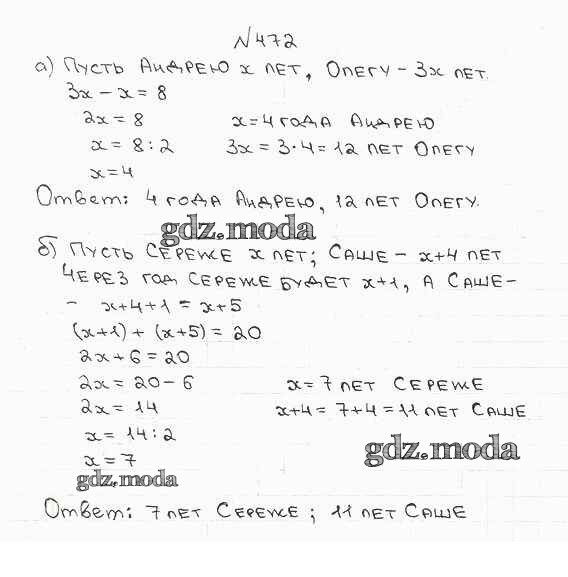 №472
а) Пусть Андрею x лет, Олегу – 3x лет.
3x – x = 8
2x = 8 x = 4 года Андрею
x = 8 : 2 3x = 3·4 = 12 лет Олегу
x = 4
Ответ: 4 года Андрею, 12 лет Олегу.
gdz.moda
б) Пусть Сереже x лет; Саше – x+4 лет
Через год Сереже будет x+1, а Саше –
– x+4+1 = x+5
(x+1) + (x+5) = 20
2x+6 = 20
2x = 20 – 6 x = 7 лет Сереже
2x = 14 x+4 = 7+4 = 11 лет Саше
x = 14 : 2
gdz.moda
x = 7
gdz.moda
Ответ: 7 лет Сереже; 11 лет Саше